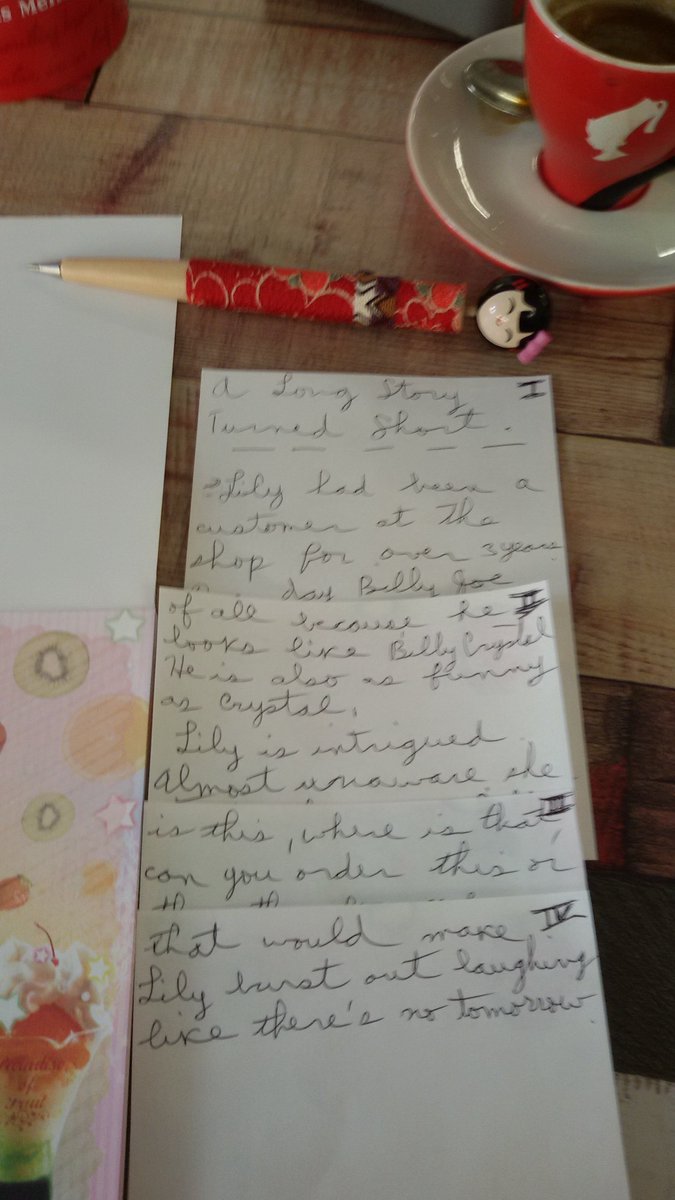 A Long Story I
Turned Short.
Lily had been a
customer at the
shop for over 3 years
day Billy Joe
of all because he II
looks like Billy Crystal
He is also as funny
as Crystal.
Lily is intrigued.
Almost unaware she
is this, where is that, III
can you order this or
that would make IV
Lily burst out laughing
like there's no tomorrow.
Paradise
of
Fruit